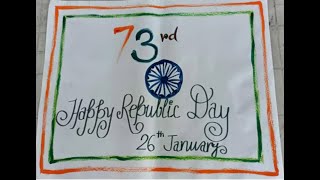 73rd
Happy Republic Day
26th January